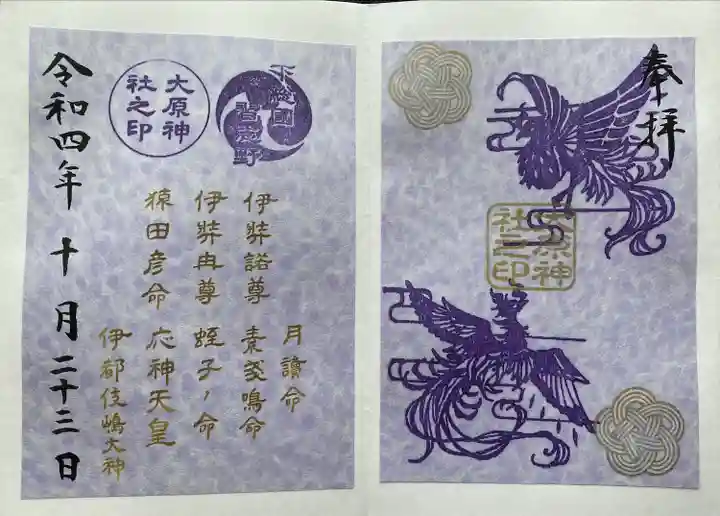 奉拝
大原神
社之印
下総國
習志野
大原神
社之印
伊弉諾尊
伊弉冉尊
猿田彦命
月讀命
素戔鳴命
蛭子ノ命
応神天皇
伊都伎嶋大神
令和四年十月二十三日